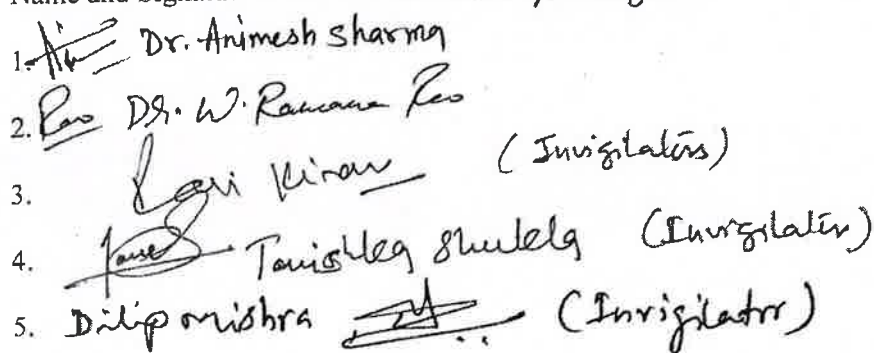 Name and Sign
1. Dr. Animesh Sharma
2. Rao Dr. W. Ramana Rao
3. Ravi Kiran (Invigilators)
4. Tanishka Shukla (Invigilator)
5. Dilip mishra (Invigilator)